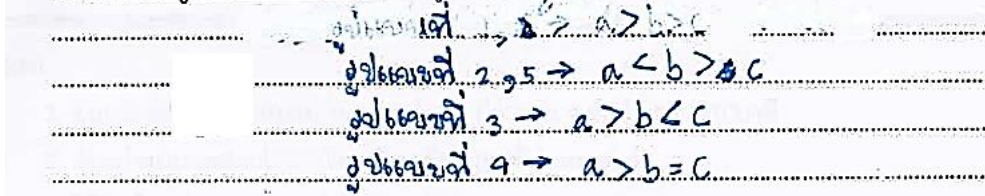 รูปแบบที่ 1, → a > b > c
รูปแบบที่ 2,5 → a < b > c
รูปแบบที่ 3 → a > b < c
รูปแบบที่ 4 → a > b = c